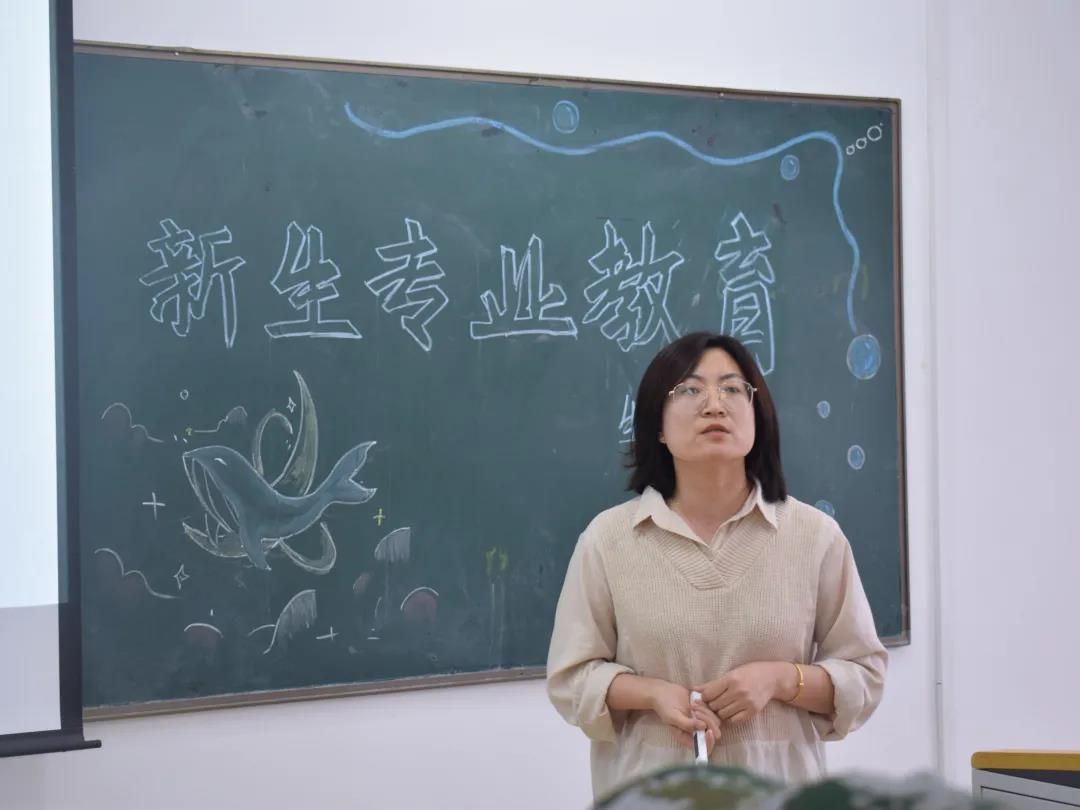 新生专业教育